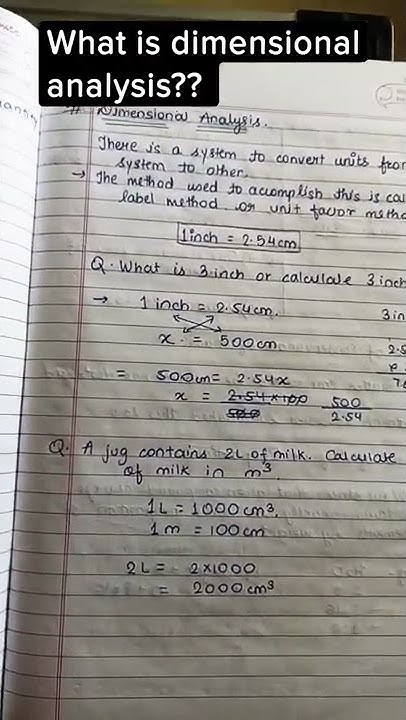 What is dimensional
analysis??
# Dimensional Analysis.
There is a system to convert units from
system to other.
→ The method used to accomplish this is
label method or unit favor
1 inch = 2.54 cm
Q. What is 3 inch or calculate 3 inch
→ 1 inch = 2.54 cm.
3 in
x = 500 cm
2.5
= 500 cm = 2.54x
x = 2.54×100 500
500 2.54
Q. A jug contains 2L of milk. Calculate
of milk in m³.
1L = 1000 cm³.
1 m = 100 cm
2L = 2×1000
= 2000 cm³